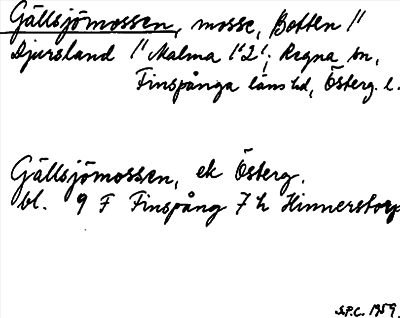 Gällsjömossen, mosse, Botten 1/1
Djursland 1/1 Malma 1/2; Regna sn,
Finspånga läns hd, Österg. l.
Gällsjömossen, ek Österg.
bl. 9 F Finspång 7 h Hinnerstorp
S.P.C. 1959.